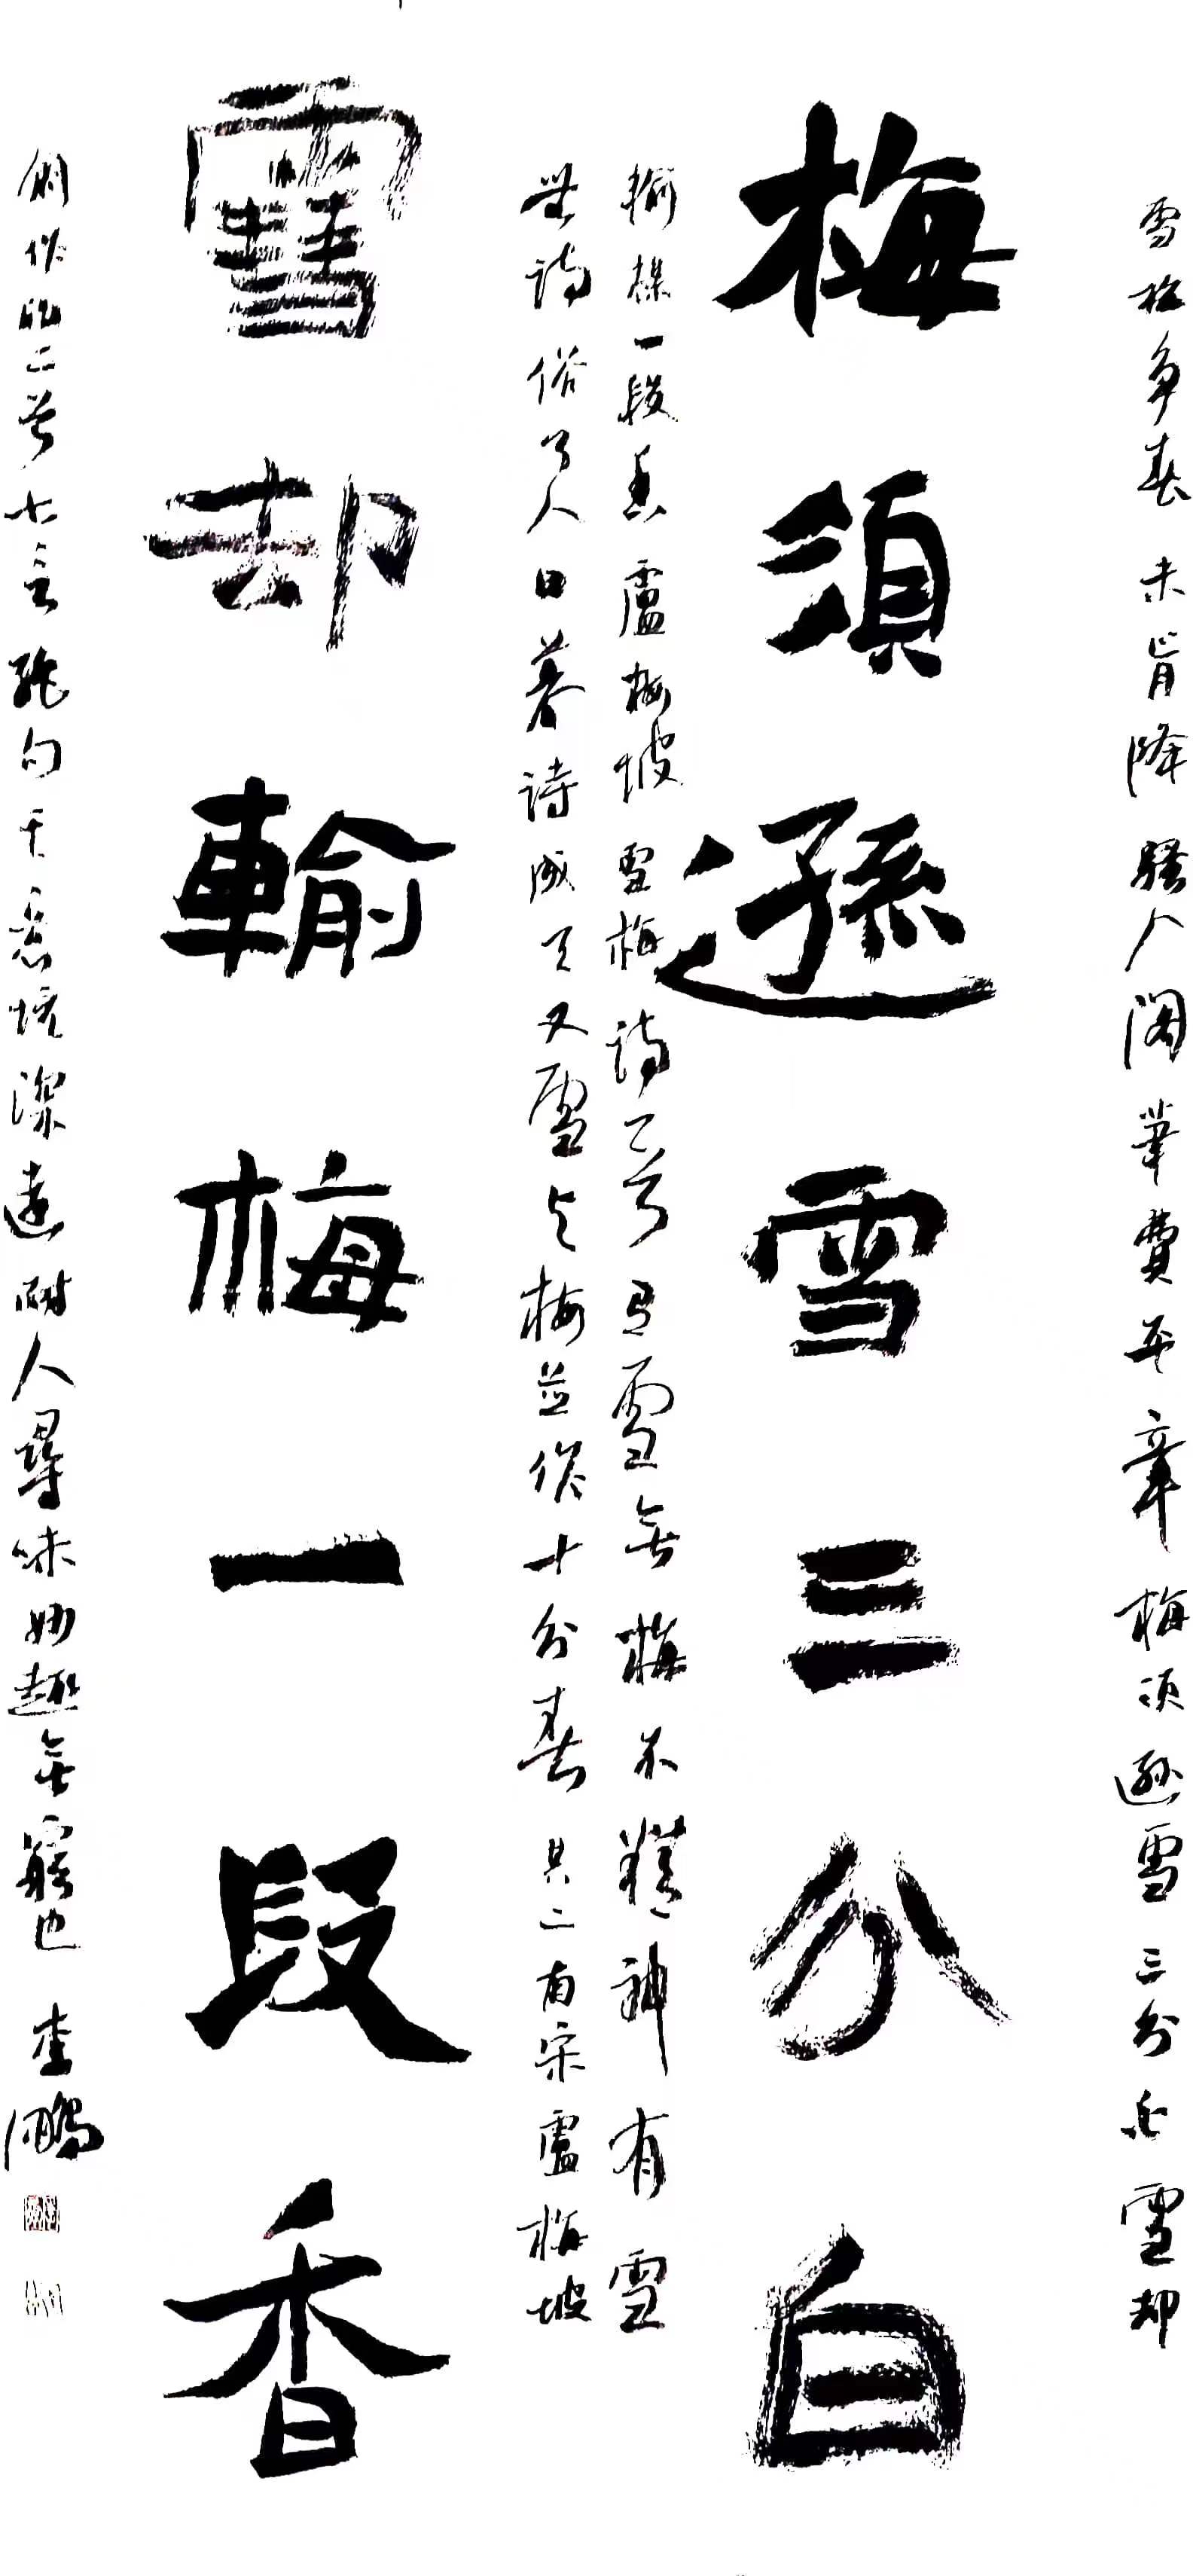 雪梅争春未肯降騷人閣筆費平章梅須遜雪三分白雪却
梅須遜雪三分白
輸梅一段香盧梅坡雪梅詩二首有雪無梅不精神有雪
無詩俗了人日暮詩成天又雪与梅並作十分春其二南宋盧梅坡
雪却輸梅一段香
創作的二首七言絶句其意境深遠耐人尋味妙趣無窮也李鵬